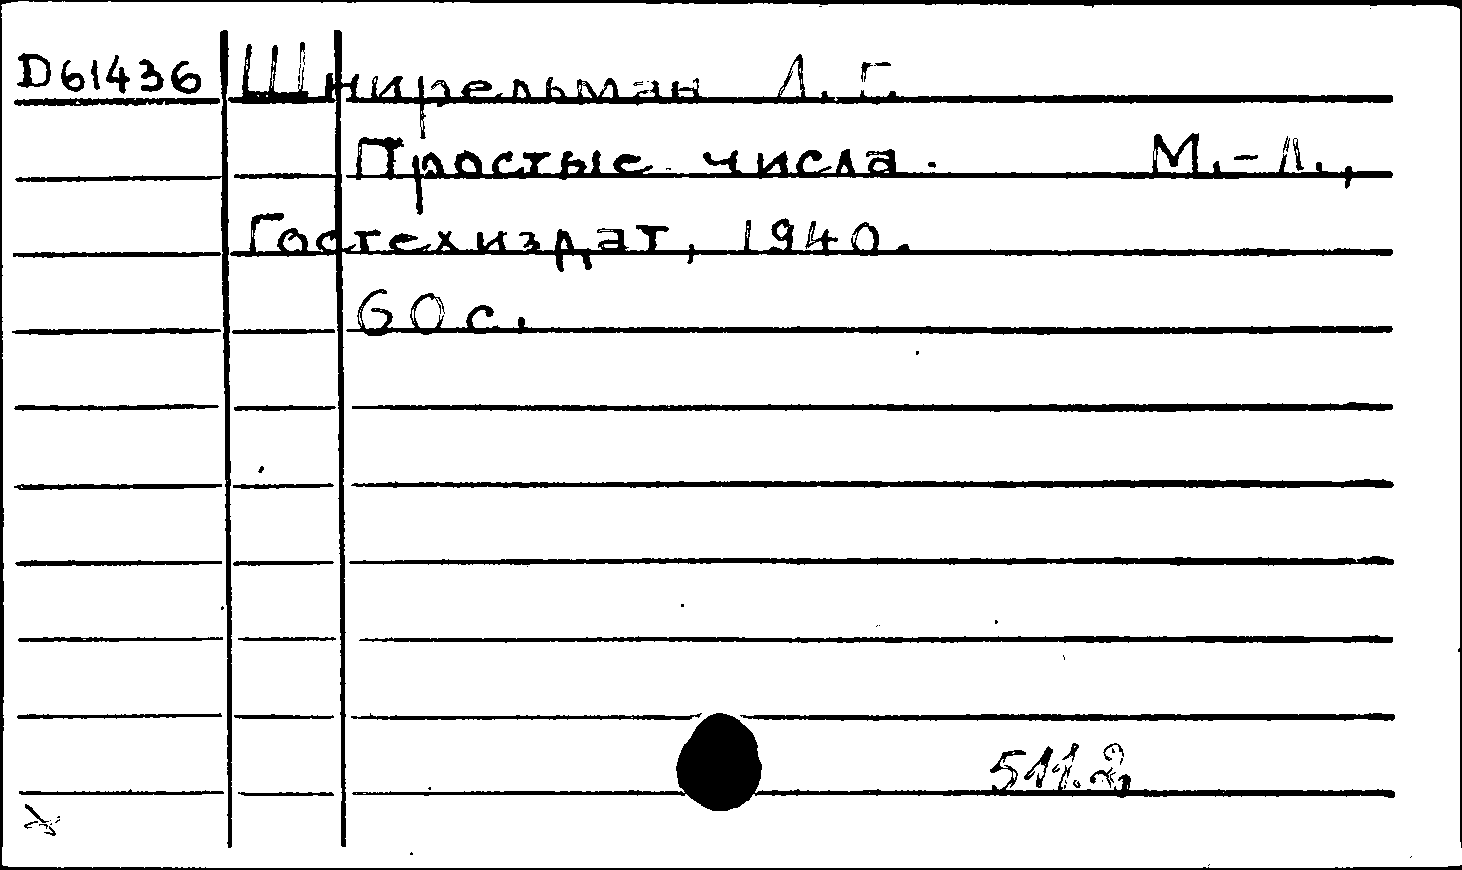 D61436 Шнирельман Л. Г.
Простые числа. М.-Л.,
Гостехиздат, 1940.
60 с.
511.2